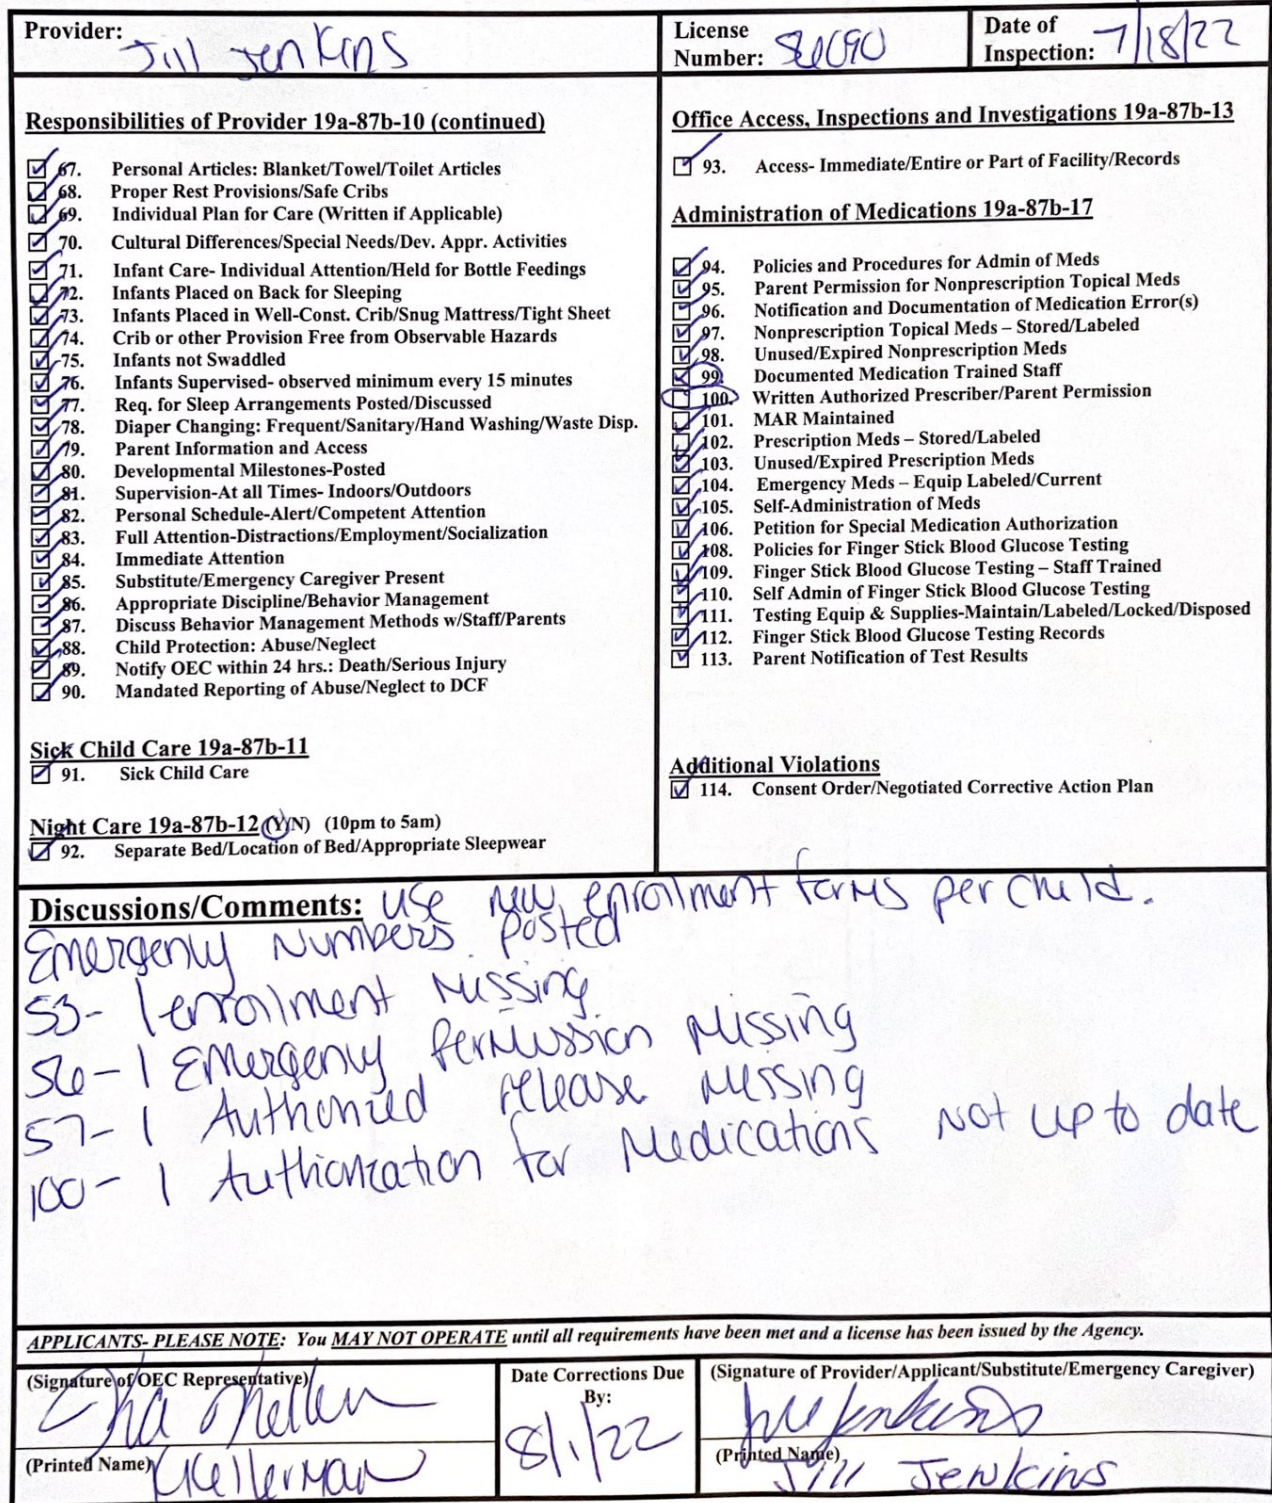 Provider: Jill Jenkins
License Number:
Date of Inspection: 7/18/22
Responsibilities of Provider 19a-87b-10 (continued)
67. Personal Articles: Blanket/Towel/Toilet Articles
68. Proper Rest Provisions/Safe Cribs
69. Individual Plan for Care (Written if Applicable)
70. Cultural Differences/Special Needs/Dev. Appr. Activities
71. Infant Care- Individual Attention/Held for Bottle Feedings
72. Infants Placed on Back for Sleeping
73. Infants Placed in Well-Const. Crib/Snug Mattress/Tight Sheet
74. Crib or other Provision Free from Observable Hazards
75. Infants not Swaddled
76. Infants Supervised- observed minimum every 15 minutes
77. Req. for Sleep Arrangements Posted/Discussed
78. Diaper Changing: Frequent/Sanitary/Hand Washing/Waste Disp.
79. Parent Information and Access
80. Developmental Milestones-Posted
81. Supervision-At all Times- Indoors/Outdoors
82. Personal Schedule-Alert/Competent Attention
83. Full Attention-Distractions/Employment/Socialization
84. Immediate Attention
85. Substitute/Emergency Caregiver Present
86. Appropriate Discipline/Behavior Management
87. Discuss Behavior Management Methods w/Staff/Parents
88. Child Protection: Abuse/Neglect
89. Notify OEC within 24 hrs.: Death/Serious Injury
90. Mandated Reporting of Abuse/Neglect to DCF
Sick Child Care 19a-87b-11
91. Sick Child Care
Night Care 19a-87b-12 (Y/N) (10pm to 5am)
92. Separate Bed/Location of Bed/Appropriate Sleepwear
Office Access, Inspections and Investigations 19a-87b-13
93. Access- Immediate/Entire or Part of Facility/Records
Administration of Medications 19a-87b-17
94. Policies and Procedures for Admin of Meds
95. Parent Permission for Nonprescription Topical Meds
96. Notification and Documentation of Medication Error(s)
97. Nonprescription Topical Meds – Stored/Labeled
98. Unused/Expired Nonprescription Meds
99. Documented Medication Trained Staff
100. Written Authorized Prescriber/Parent Permission
101. MAR Maintained
102. Prescription Meds – Stored/Labeled
103. Unused/Expired Prescription Meds
104. Emergency Meds – Equip Labeled/Current
105. Self-Administration of Meds
106. Petition for Special Medication Authorization
108. Policies for Finger Stick Blood Glucose Testing
109. Finger Stick Blood Glucose Testing – Staff Trained
110. Self Admin of Finger Stick Blood Glucose Testing
111. Testing Equip & Supplies-Maintain/Labeled/Locked/Disposed
112. Finger Stick Blood Glucose Testing Records
113. Parent Notification of Test Results
Additional Violations
114. Consent Order/Negotiated Corrective Action Plan
Discussions/Comments: Use new enrollment forms per child.
Emergency Numbers posted
53- 1 enrollment Missing
56- 1 Emergency Permission Missing
57- 1 Authorized release Missing
100- 1 Authorization for Medications Not up to date
APPLICANTS- PLEASE NOTE: You MAY NOT OPERATE until all requirements have been met and a license has been issued by the Agency.
(Signature of OEC Representative)
(Printed Name) Kellerman
Date Corrections Due By:
8/1/22
(Signature of Provider/Applicant/Substitute/Emergency Caregiver)
Jill Jenkins
(Printed Name) Jill Jenkins